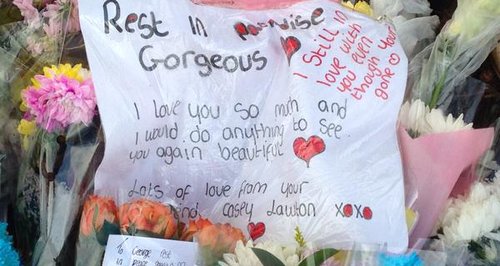 Rest In
Gorgeous
I Still in
love with
you even
though your
gone
I love you so much and
I would do anything to see
you again beautiful
Lots of love from your
Casey Lawton xoxo
To George rest
in